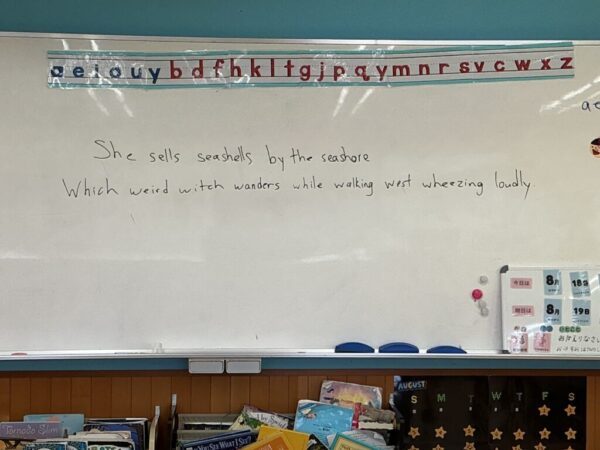 a e i o u y b d f h k l t g j p q y m n r s v c w x z
a e
She sells seashells by the seashore
Which weird witch wanders while walking west wheezing loudly.
今日は 8月 18日
明日は 8月 19日
AUGUST
S M T W T F S
Tornado Slim
YOU SEE WHAT I SEE?